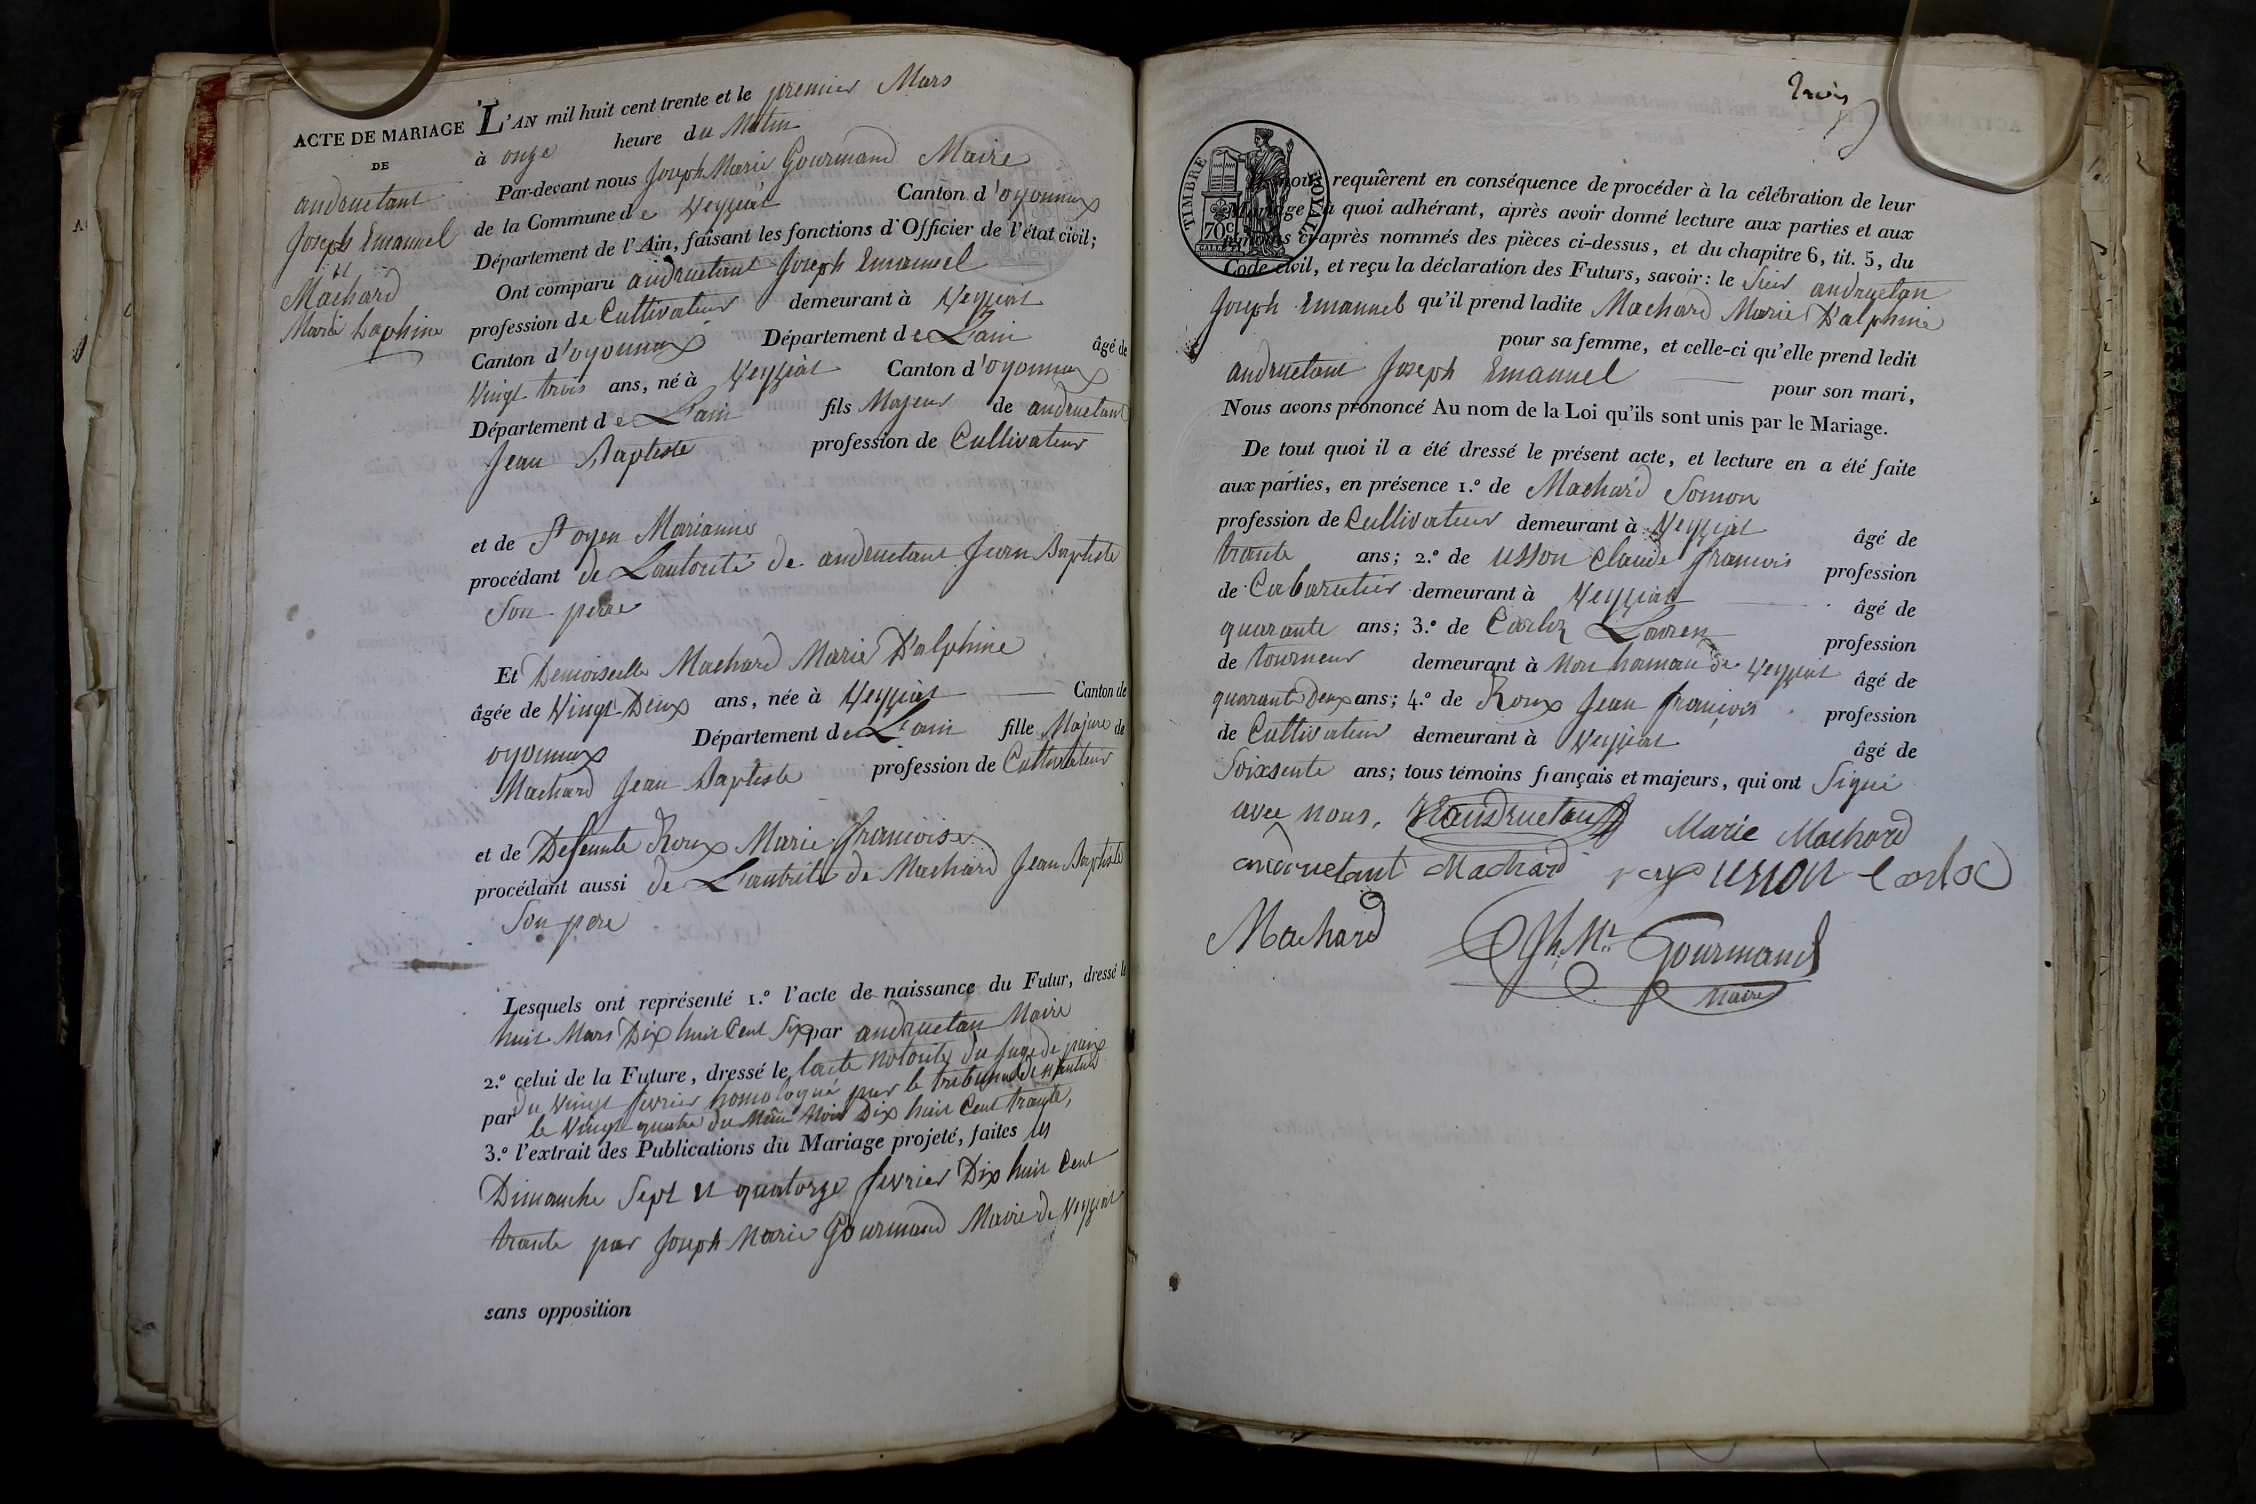 ACTE DE MARIAGE
DE
andruetant
Joseph Emanuel
et
Machard
Marie Daphine
L'AN mil huit cent trente et le premier Mars
à onze heure du Matin
Par-devant nous Joseph Marie Gourmand Maire
de la Commune de Veyziat Canton d'oyonnax
Département de l'Ain, faisant les fonctions d'Officier de l'état civil;
Ont comparu andruetant Joseph Emanuel
profession de Cultivateur demeurant à Veyziat
Canton d'oyonnax Département de L'ain âgé de
Vingt trois ans, né à Veyziat Canton d'oyonnax
Département de L'ain fils Majeur de andruetant
Jean Baptiste profession de Cultivateur
et de Poyen Marianne
procédant de L'autorité de andruetant Jean Baptiste
Son pere
Et Demoiselle Machard Marie D'alphine
âgée de Vingt Deux ans, née à Veyziat Canton de
oyonnax Département de L'ain fille Majure de
Machard Jean Baptiste profession de Cultivateur
et de Defeunte Roux Marie francoise
procédant aussi de L'autrité de Machard Jean Baptiste
Son pere
Lesquels ont représenté 1.º l'acte de naissance du Futur, dressé le
huit Mars Dix huit Cent Six par andruetan Maire
2.º celui de la Future, dressé le l'acte notorité du juge de paix
du Vingt fevrier homologué par le tribunal de nantua
par le Vingt quatre du Même Mois Dix huit Cent trante,
3.º l'extrait des Publications du Mariage projeté, faites les
Dimanche Sept et quatorze fevrier Dix huit Cent
trante par Joseph Marie Gourmand Maire de Veyziat
sans opposition
Trois
TIMBRE ROYAL
70c
nous requièrent en conséquence de procéder à la célébration de leur
Mariage à quoi adhérant, après avoir donné lecture aux parties et aux
témoins ci-après nommés des pièces ci-dessus, et du chapitre 6, tit. 5, du
Code civil, et reçu la déclaration des Futurs, savoir: le Sieur andruetan
Joseph Emanuel qu'il prend ladite Machard Marie D'alphine
pour sa femme, et celle-ci qu'elle prend ledit
andruetant Joseph Emanuel pour son mari,
Nous avons prononcé Au nom de la Loi qu'ils sont unis par le Mariage.
De tout quoi il a été dressé le présent acte, et lecture en a été faite
aux parties, en présence 1.º de Machard Somon
profession de Cultivateur demeurant à Veyziat âgé de
trante ans; 2.º de usson Claude francois profession
de Cabaretier demeurant à Veyziat âgé de
quarante ans; 3.º de Carloz Lauren profession
de tourneur demeurant à hamau de Veyziat âgé de
quarant Deux ans; 4.º de Roux Jean françois profession
de Cultivateur demeurant à Veyziat âgé de
Soixsente ans; tous témoins français et majeurs, qui ont Signé
avec nous, andruetant Marie Machard
andruetant Machard usson Carloz
Machard Jh. Mie Gourmand
Maire